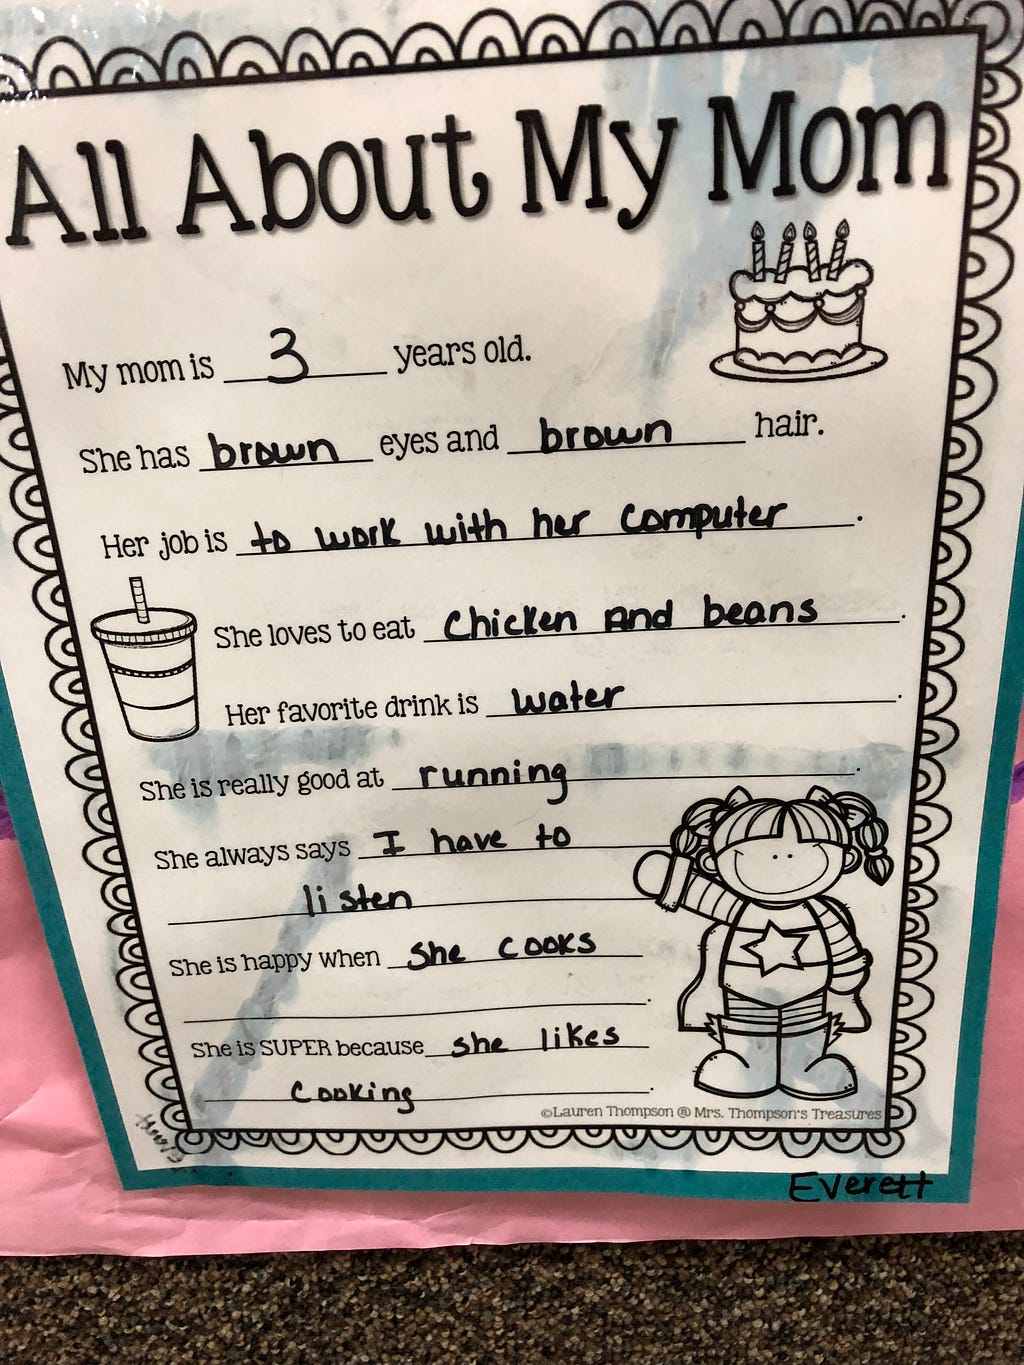 All About My Mom
My mom is 3 years old.
She has brown eyes and brown hair.
Her job is to work with her computer.
She loves to eat Chicken And beans.
Her favorite drink is water.
She is really good at running.
She always says I have to
listen
She is happy when she cooks
.
She is SUPER because she likes
Cooking.
©Lauren Thompson @ Mrs. Thompson's Treasures
Everett